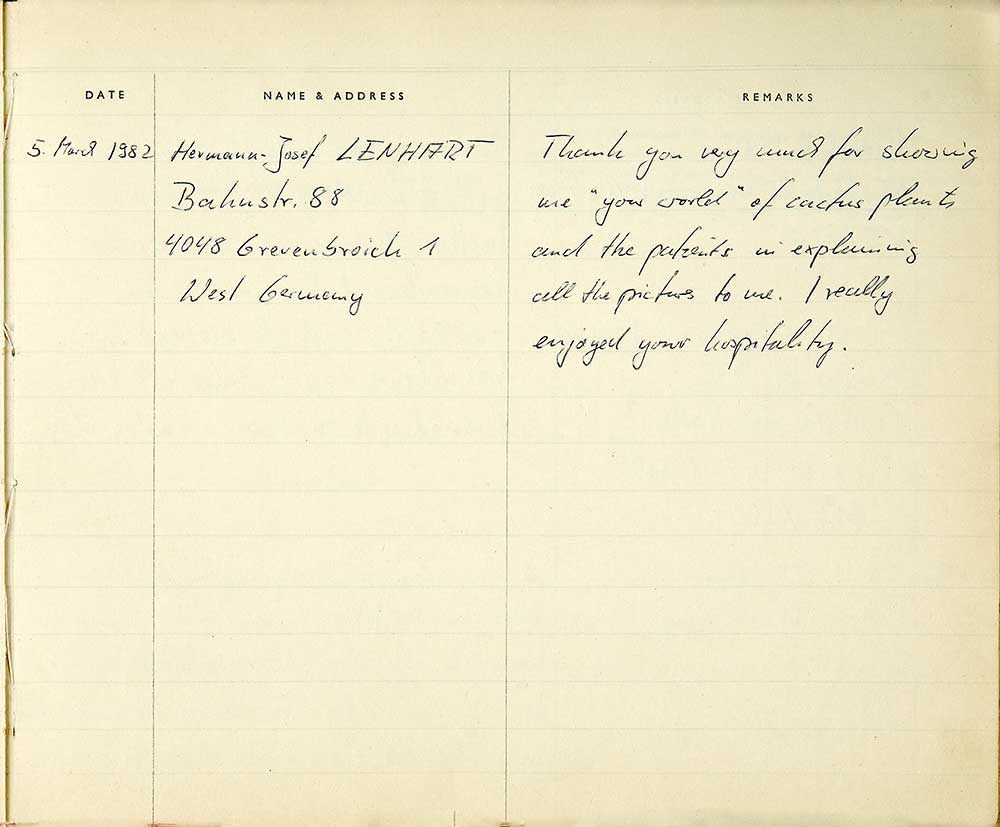 DATE NAME & ADDRESS REMARKS
5. March 1982 Hermann-Josef LENHART Thank you very much for showing
Bahnstr. 88 me "your world" of cactus plants
4048 Grevenbroich 1 and the patients in explaining
West Germany all the pictures to me. I really
enjoyed your hospitality.